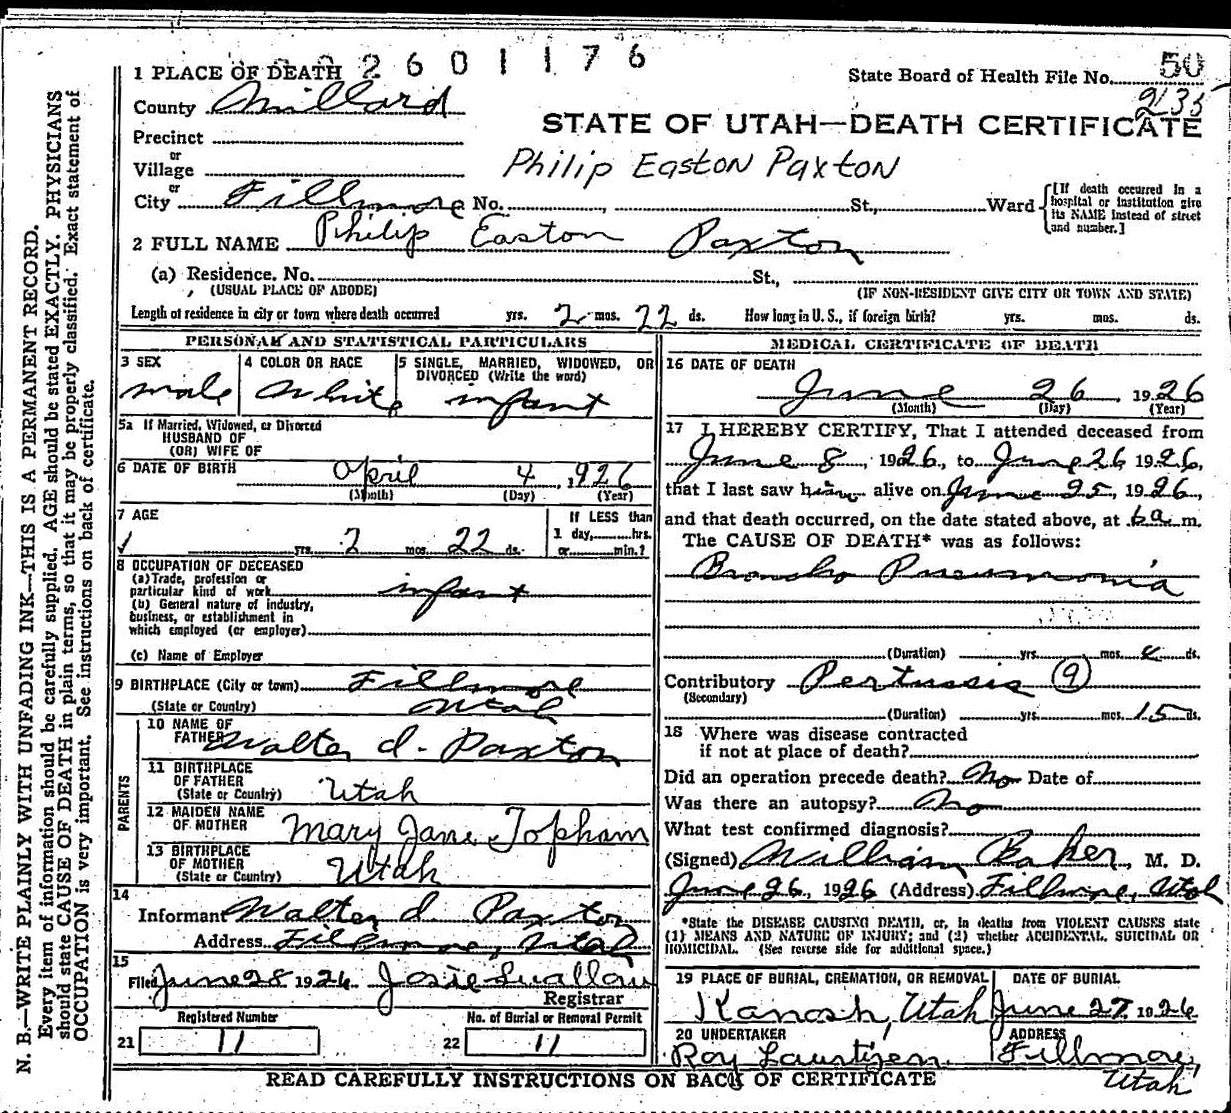 2601176
1 PLACE OF DEATH
State Board of Health File No. 50
2135
County Millard
STATE OF UTAH—DEATH CERTIFICATE
Precinct
or
Village
Philip Easton Paxton
or
City Fillmore No. St., Ward
[If death occurred in a hospital or institution give its NAME instead of street and number.]
2 FULL NAME Philip Easton Paxton
(a) Residence. No. St.,
(USUAL PLACE OF ABODE) (IF NON-RESIDENT GIVE CITY OR TOWN AND STATE)
Length of residence in city or town where death occurred yrs. 2 mos. 22 ds. How long in U. S., if foreign birth? yrs. mos. ds.
PERSONAL AND STATISTICAL PARTICULARS
3 SEX
male
4 COLOR OR RACE
White
5 SINGLE, MARRIED, WIDOWED, OR DIVORCED (Write the word)
infant
5a If Married, Widowed, or Divorced
HUSBAND OF
(OR) WIFE OF
6 DATE OF BIRTH April 4, 1926
(Month) (Day) (Year)
7 AGE
yrs. 2 mos. 22 ds.
If LESS than
1 day, hrs.
or min.?
8 OCCUPATION OF DECEASED
(a) Trade, profession or
particular kind of work infant
(b) General nature of industry,
business, or establishment in
which employed (or employer)
(c) Name of Employer
9 BIRTHPLACE (City or town) Fillmore
(State or Country) Utah
PARENTS
10 NAME OF
FATHER Walter d. Paxton
11 BIRTHPLACE
OF FATHER
(State or Country) Utah
12 MAIDEN NAME
OF MOTHER Mary Jane Topham
13 BIRTHPLACE
OF MOTHER
(State or Country) Utah
14
Informant Walter d. Paxton
Address Fillmore, Utah
15
Filed June 28 1926 Josie
Registrar
Registered Number No. of Burial or Removal Permit
21 11 22 11
MEDICAL CERTIFICATE OF DEATH
16 DATE OF DEATH
June 26, 1926
(Month) (Day) (Year)
17 I HEREBY CERTIFY, That I attended deceased from
June 8, 1926, to June 26 1926,
that I last saw him alive on June 25, 1926,
and that death occurred, on the date stated above, at 6 a m.
The CAUSE OF DEATH* was as follows:
Broncho Pneumonia
(Duration) yrs. mos. 4 ds.
Contributory Pertussis (9)
(Secondary)
(Duration) yrs. mos. 15 ds.
18 Where was disease contracted
if not at place of death?
Did an operation precede death? No Date of
Was there an autopsy? No
What test confirmed diagnosis?
(Signed) William Baker, M. D.
June 26, 1926 (Address) Fillmore, Utah
*State the DISEASE CAUSING DEATH, or, in deaths from VIOLENT CAUSES state
(1) MEANS AND NATURE OF INJURY; and (2) whether ACCIDENTAL, SUICIDAL OR
HOMICIDAL. (See reverse side for additional space.)
19 PLACE OF BURIAL, CREMATION, OR REMOVAL
Kanosh, Utah
DATE OF BURIAL
June 27 1926
20 UNDERTAKER
Roy Lauritzen
ADDRESS
Fillmore,
Utah
READ CAREFULLY INSTRUCTIONS ON BACK OF CERTIFICATE
N. B.—WRITE PLAINLY WITH UNFADING INK—THIS IS A PERMANENT RECORD.
Every item of information should be carefully supplied. AGE should be stated EXACTLY. PHYSICIANS
should state CAUSE OF DEATH in plain terms, so that it may be properly classified. Exact statement of
OCCUPATION is very important. See instructions on back of certificate.